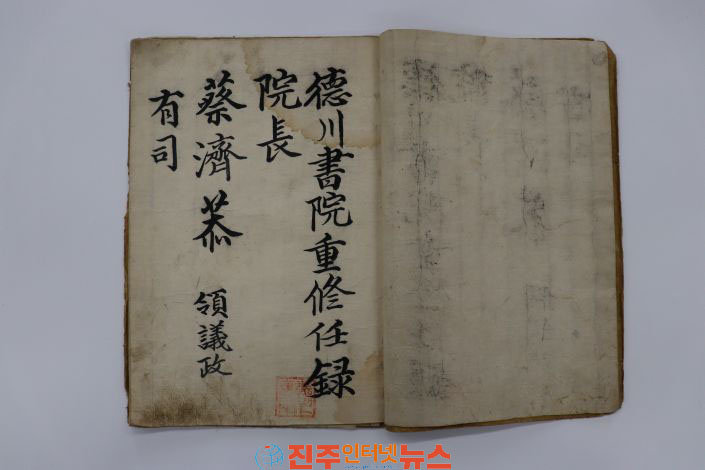 德川書院重修任録
院長
蔡濟恭 領議政
有司
진주인터넷뉴스